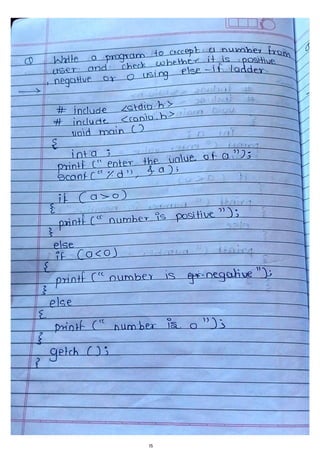 Q Write a program to accept a number from
user and check whether it is positive
, negative or 0 using else-if ladder.
→
# include <stdio.h>
# include <conio.h>
void main ()
{
int a ;
printf (" enter the value of a.");
scanf (" % d", & a);
if ( a>0)
{
printf (" number is positive ");
}
else
if (a<0)
{
printf (" number is negative ");
}
else
{
printf (" number is 0 ");
}
getch ();
}
15